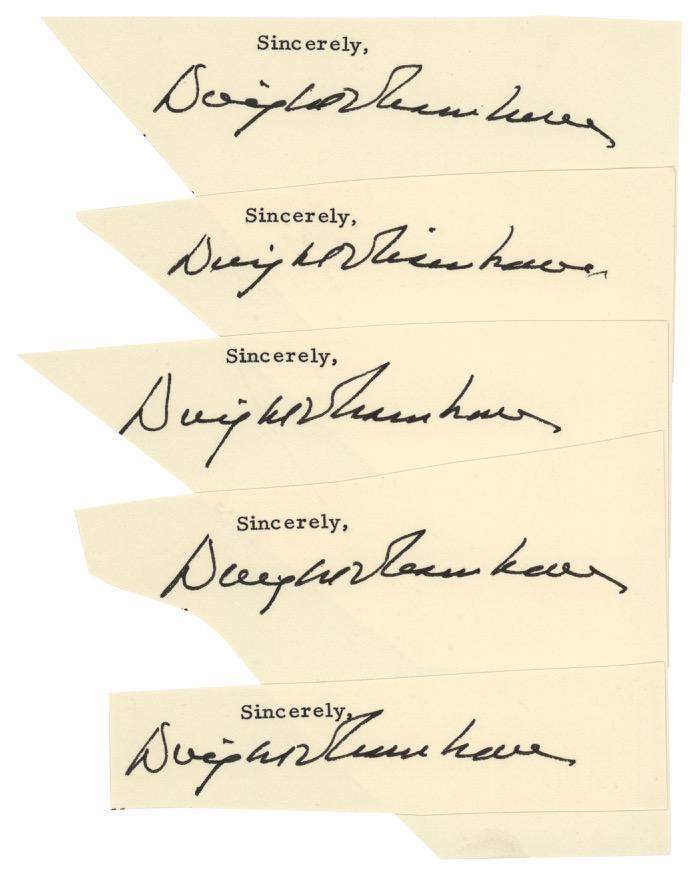 Sincerely,
Dwight D Eisenhower
Sincerely,
Dwight D Eisenhower
Sincerely,
Dwight D Eisenhower
Sincerely,
Dwight D Eisenhower
Sincerely,
Dwight D Eisenhower